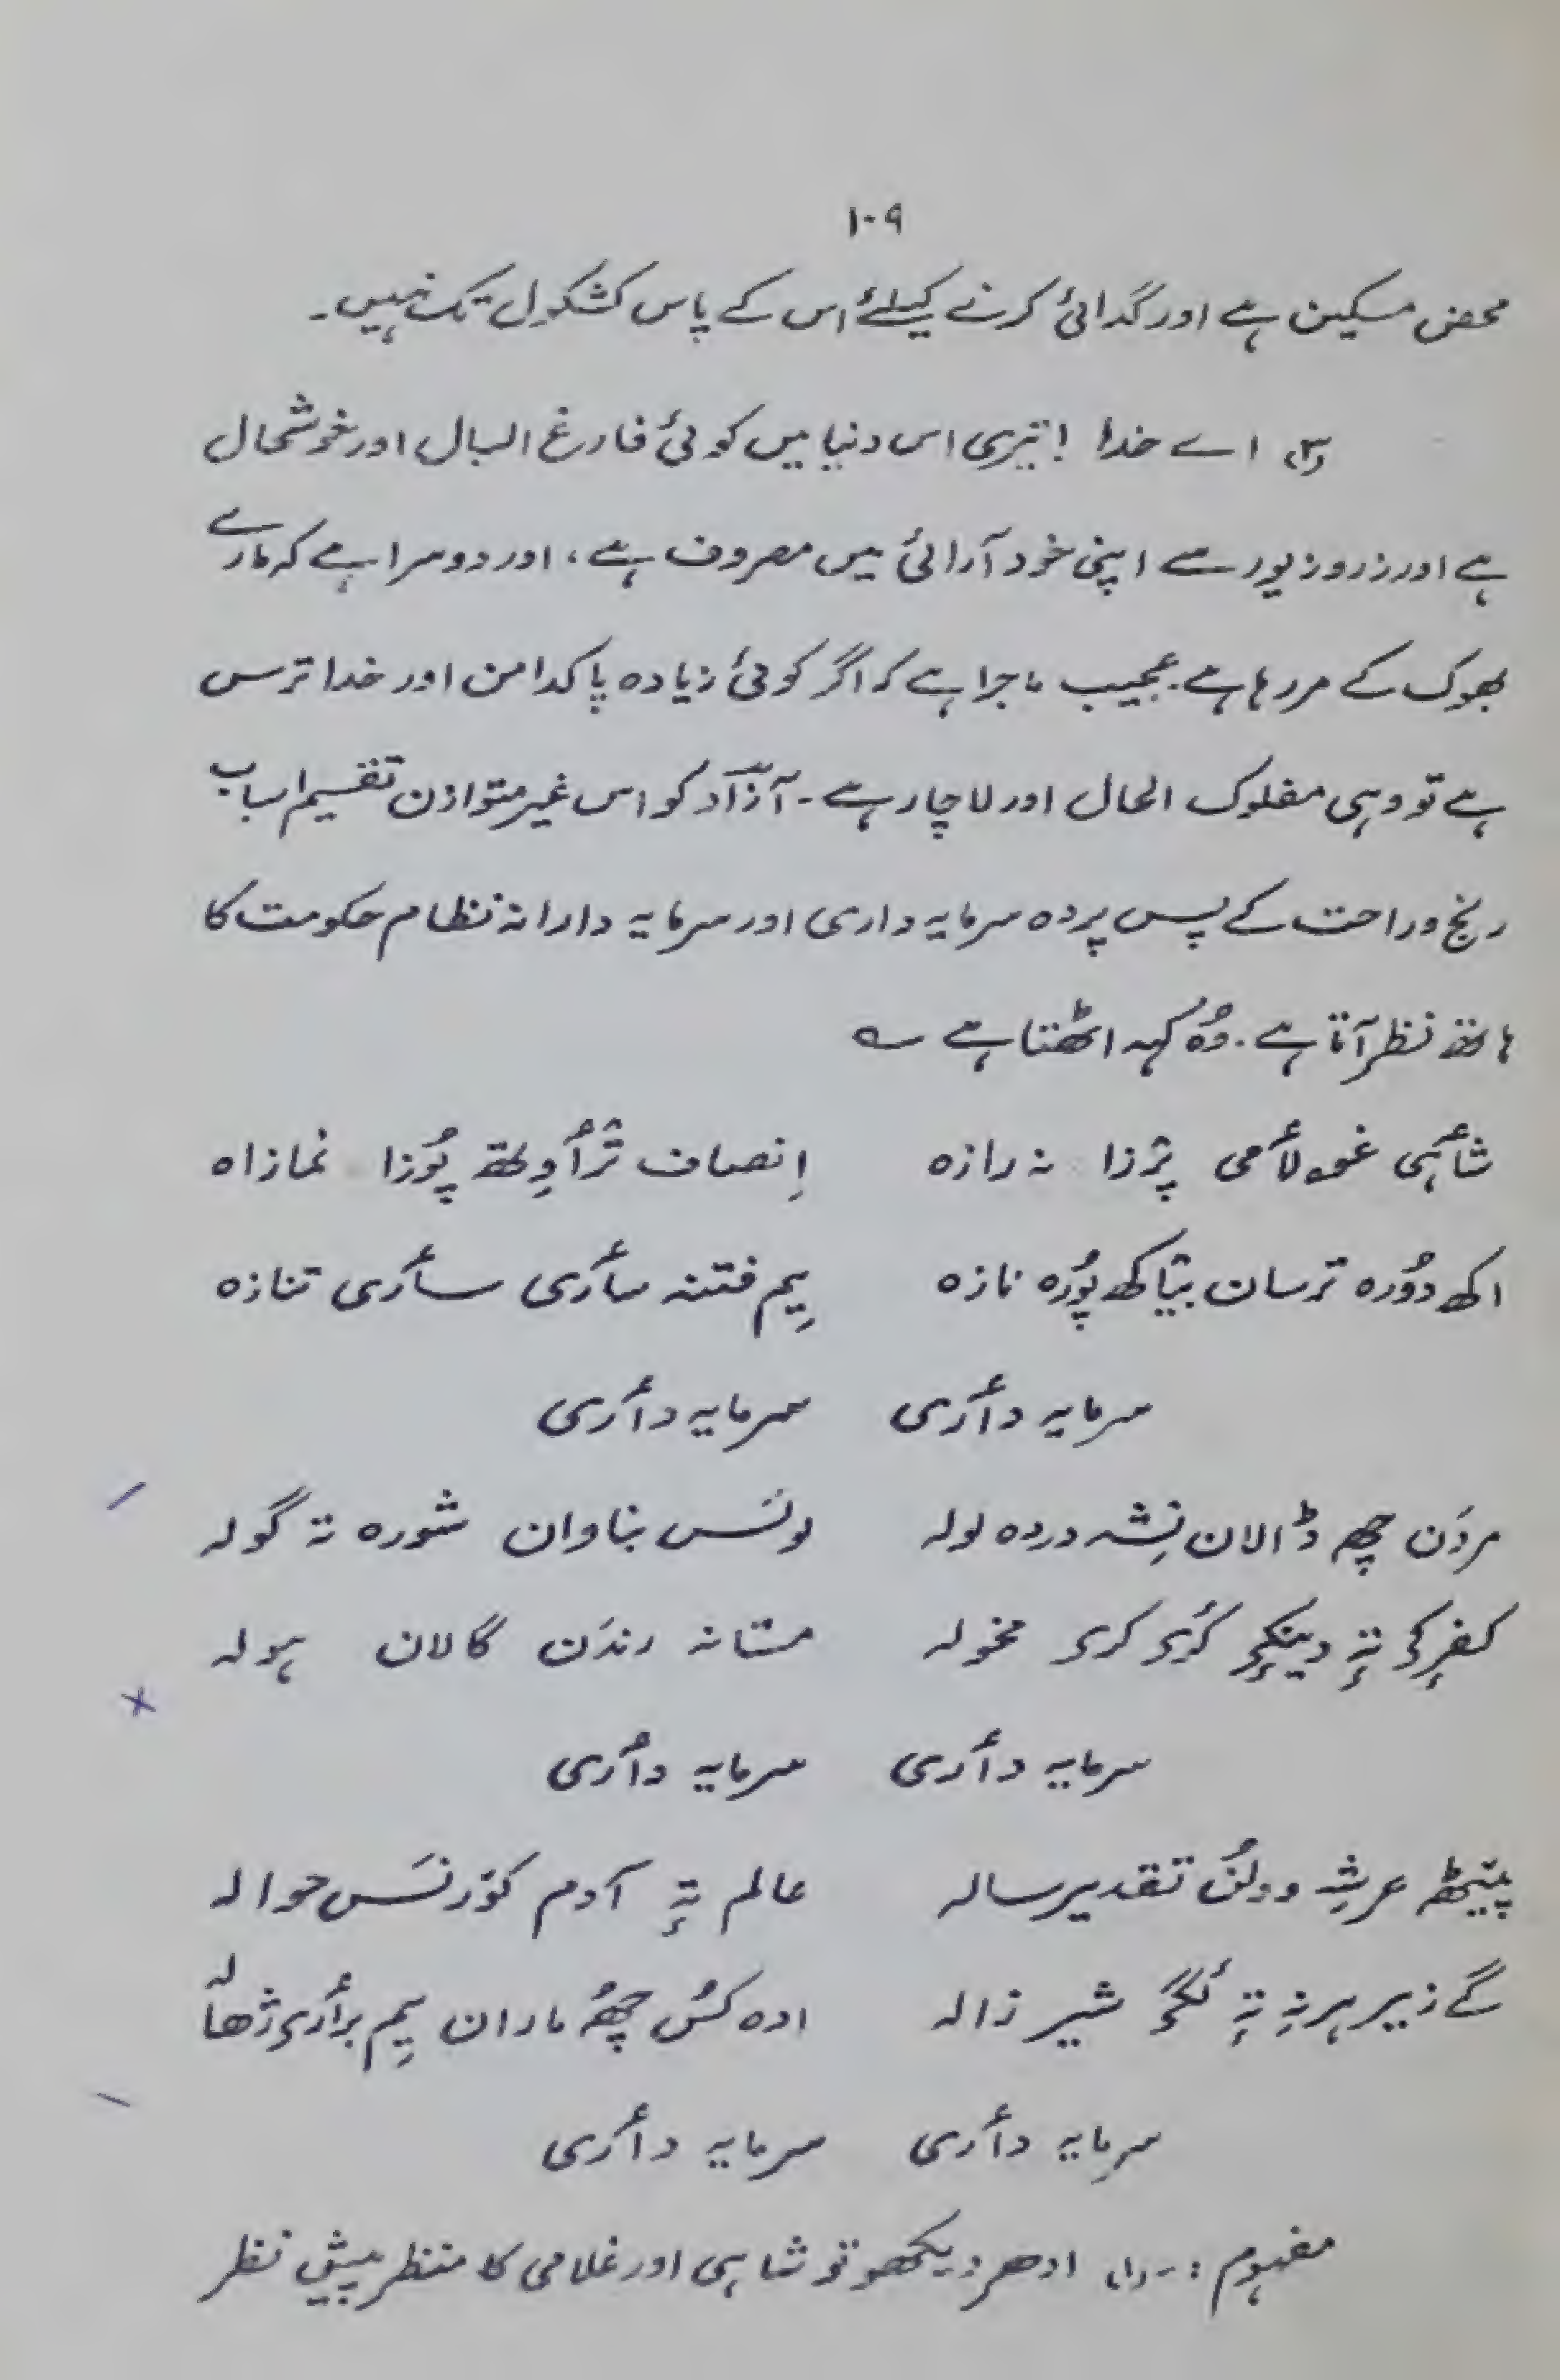 ۱۰۹
محض مسکین ہے اور گدائی کرنے کیلئے اس کے پاس کشکول تک نہیں۔
(۳) اے خدا! تیری اس دنیا میں کوئی فارغ البال اور خوشحال
ہے اور زر و زیور سے اپنی خود آرائی میں مصروف ہے، اور دوسرا ہے کہ مارے
بھوک کے مر رہا ہے۔ عجیب ماجرا ہے کہ اگر کوئی زیادہ پاکدامن اور خدا ترس
ہے تو وہی مفلوک الحال اور لاچار ہے۔ آزاد کو اس غیر متوازن تقسیم اسباب
رنج و راحت کے پس پردہ سرمایہ داری اور سرمایہ دارانہ نظام حکومت کا
ہاتھ نظر آتا ہے۔ وُہ کہہ اٹھتا ہے ؎
شأہی غولأمی پرٛزا نہ رازہ اِنصاف ترٛأوِتھ پوٗزا نمازاہ
اکھ دوٗرہ ترسان بیٛاکھ پوٗرہ نازہ یِم فتنہ سأری سأری تنازہ
سرمایہ دأری سرمایہ دأری
مردَن چھ ڈالان نِشہ دردہ لولہ لونَس بناوان شورہ تہ گولہ
کفرٕکۍ تہٕ دینکۍ کٔرۍ کرۍ مخولہ مستانہ رندَن گالان ہولہ
سرمایہ دأری سرمایہ دأری
پیٚٹھ عرشہِ وولُن تقدیر سالہ عالم تہٕ آدم کوٚرنَس حوالہ
گے زیر ہرنہٕ تہٕ لٔگۍ شیر زالہ ادہ کُس چھُ ماران یِم برأرۍ ژھالہ
سرمایہ دأری سرمایہ دأری
مفہوم :۔ (۱) ادھر دیکھو تو شاہی اور غلامی کا منظر پیش نظر